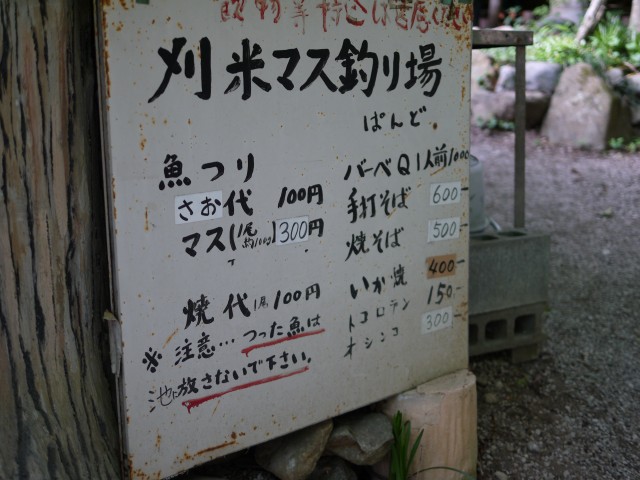 刈米マス釣り場
ぱんど
魚つり
さお代 100円
マス(1尾約100g) 300円
焼代 1尾100円
※注意…つった魚は
池に放さないで下さい。
バーベQ 1人前1000
手打そば 600
焼そば 500
いか焼 400
トコロテン 150-
オシンコ 300